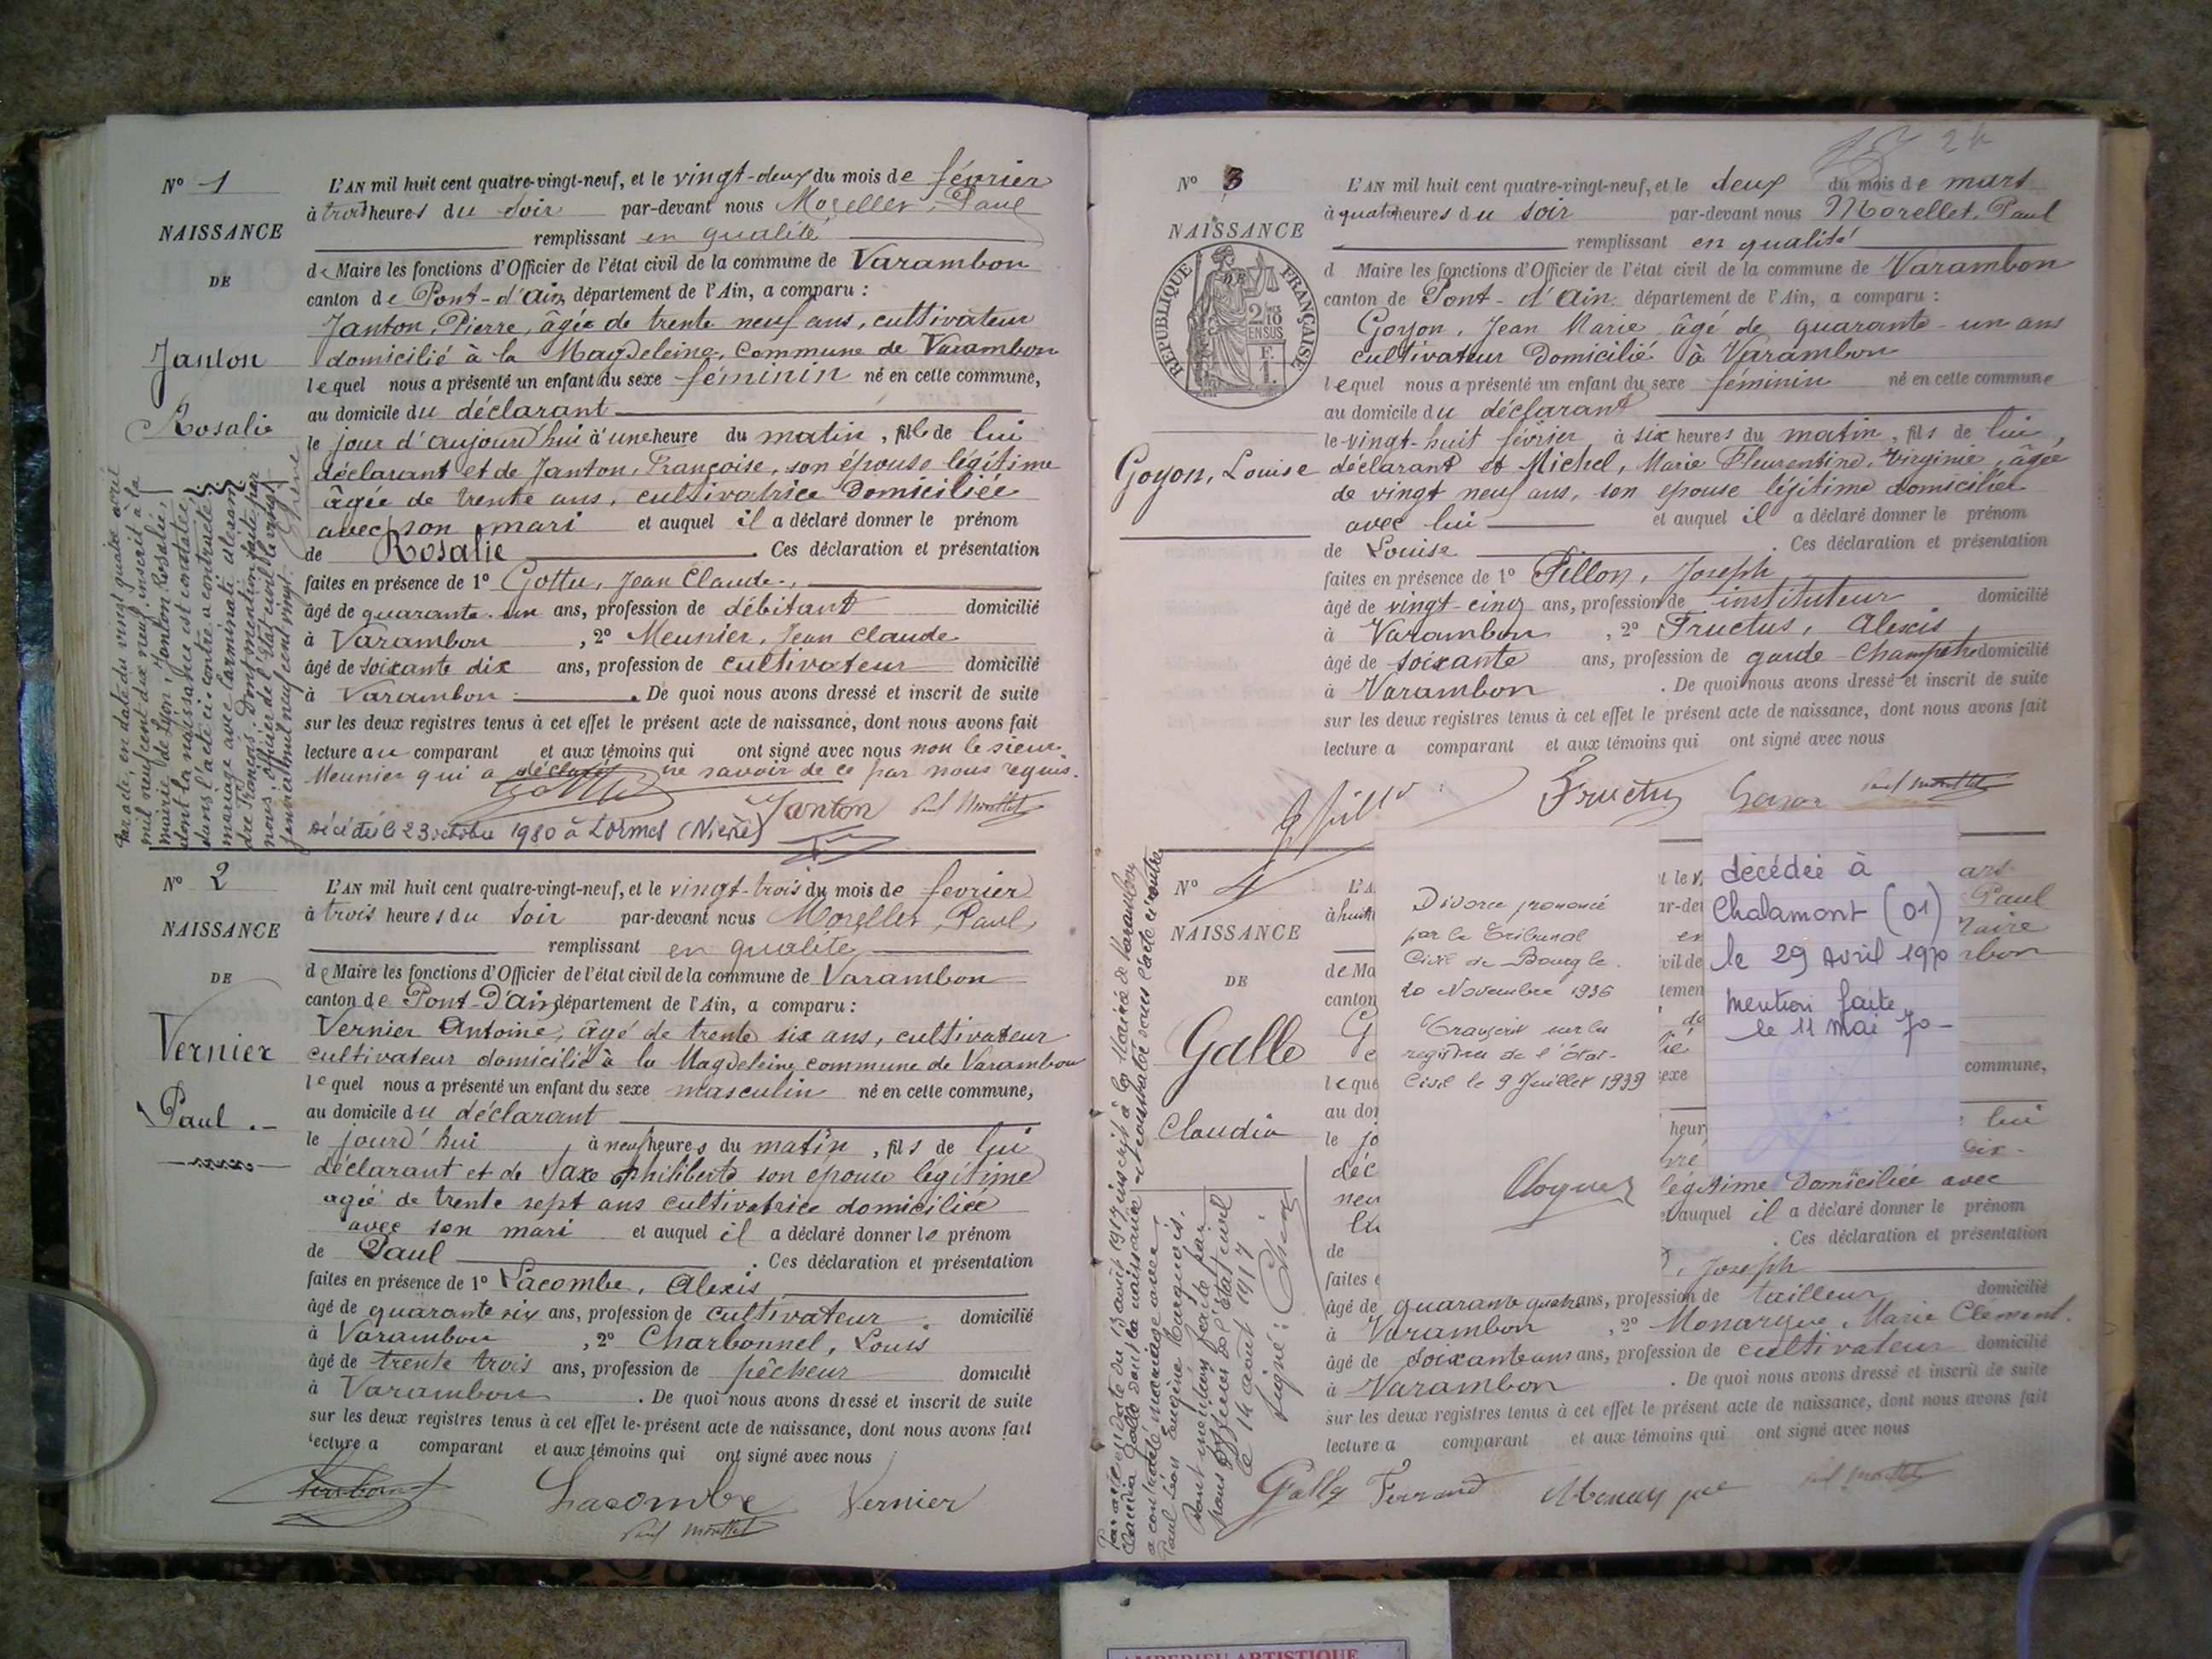 N° 1
NAISSANCE
DE
Janton
Rosalie
L'AN mil huit cent quatre-vingt-neuf, et le vingt-deux du mois de février
à trois heures du soir par-devant nous Morellet, Paul
remplissant en qualité
de Maire les fonctions d'Officier de l'état civil de la commune de Varambon
canton de Pont-d'Ain département de l'Ain, a comparu :
Janton, Pierre, âgée de trente neuf ans, cultivateur
domicilié à la Magdeleine, Commune de Varambon
lequel nous a présenté un enfant du sexe féminin né en cette commune,
au domicile du déclarant
le jour d'aujourd'hui à une heure du matin, fille de lui
déclarant et de Janton, Françoise, son épouse légitime
âgée de trente ans, cultivatrice Domiciliée
avec son mari et auquel il a déclaré donner le prénom
de Rosalie. Ces déclaration et présentation
faites en présence de 1° Gottu, Jean Claude,
âgé de quarante un ans, profession de débitant domicilié
à Varambon, 2° Meunier, Jean Claude
âgé de soixante dix ans, profession de cultivateur domicilié
à Varambon. De quoi nous avons dressé et inscrit de suite
sur les deux registres tenus à cet effet le présent acte de naissance, dont nous avons fait
lecture au comparant et aux témoins qui ont signé avec nous non le sieur
Meunier qui a déclaré ne savoir de ce par nous requis.
Janton Paul Morellet
Décédée le 23 octobre 1980 à Lormes (Nièvre)
Par acte, en date du vingt quatre avril
mil neuf cent dix neuf, inscrit à la
mairie de Lyon, Janton Rosalie,
dont la naissance est constatée
dans l'acte ci-contre a contracté
mariage avec
nous, officier de l'état civil le vingt
janvier mil neuf cent vingt.
N° 2
NAISSANCE
DE
Vernier
Paul.
L'AN mil huit cent quatre-vingt-neuf, et le vingt-trois du mois de fevrier
à trois heures du soir par-devant nous Morellet, Paul
remplissant en qualité
de Maire les fonctions d'Officier de l'état civil de la commune de Varambon
canton de Pont-D'ain département de l'Ain, a comparu :
Vernier Antoine, âgé de trente six ans, cultivateur
cultivateur domicilié à la Magdeleine commune de Varambon
lequel nous a présenté un enfant du sexe masculin né en cette commune,
au domicile du déclarant
le jourd'hui à neuf heures du matin, fils de lui
déclarant et de Saxe Philiberte son epouse légitime
agée de trente sept ans cultivatrice domiciliée
avec son mari et auquel il a déclaré donner le prénom
de Paul. Ces déclaration et présentation
faites en présence de 1° Lacombe, Alexis
âgé de quarante six ans, profession de cultivateur domicilié
à Varambon, 2° Charbonnel, Louis
âgé de trente trois ans, profession de pêcheur domicilié
à Varambon. De quoi nous avons dressé et inscrit de suite
sur les deux registres tenus à cet effet le présent acte de naissance, dont nous avons fait
lecture a comparant et aux témoins qui ont signé avec nous
Lacombe Vernier
Paul Morellet
24
N° 3
NAISSANCE
DE
RÉPUBLIQUE FRANÇAISE
2/10
EN SUS
Goyon, Louise
L'AN mil huit cent quatre-vingt-neuf, et le deux du mois de mars
à quatre heures du soir par-devant nous Morellet, Paul
remplissant en qualité
d Maire les fonctions d'Officier de l'état civil de la commune de Varambon
canton de Pont-d'Ain département de l'Ain, a comparu :
Goyon, Jean Marie âgé de quarante-un ans
cultivateur Domicilié à Varambon
lequel nous a présenté un enfant du sexe féminin né en cette commune
au domicile du déclarant
le vingt-huit février à six heures du matin, fils de lui,
déclarant et Michel, Marie Fleurentine, Virginie, âgée
de vingt neuf ans, son epouse légitime domiciliée
avec lui et auquel il a déclaré donner le prénom
de Louise. Ces déclaration et présentation
faites en présence de 1° Fillon, Joseph
âgé de vingt-cinq ans, profession de instituteur domicilié
à Varambon, 2° Fructus, Alexis
âgé de soixante ans, profession de garde-Champêtre domicilié
à Varambon. De quoi nous avons dressé et inscrit de suite
sur les deux registres tenus à cet effet le présent acte de naissance, dont nous avons fait
lecture a comparant et aux témoins qui ont signé avec nous
Fructus Goyon Paul Morellet
N° 4
NAISSANCE
DE
Galle
Claudia
Divorce prononcé
par le Tribunal
Civil de Bourg le
20 Novembre 1936
Transcrit sur les
registres de l'État-
Civil le 9 Juillet 1939
décédée à
Chalamont (01)
le 29 Avril 1970
Mention faite
le 11 mai 70-
ars
Paul
Maire
rbon
commune,
lui
dix-
légitime Domiciliée avec
et auquel il a déclaré donner le prénom
. Ces déclaration et présentation
faites
, Joseph
âgé de quarante quatre ans, profession de tailleur domicilié
à Varambon, 2° Monarque, Marie Clément.
âgé de soixante un ans, profession de cultivateur domicilié
à Varambon. De quoi nous avons dressé et inscrit de suite
sur les deux registres tenus à cet effet le présent acte de naissance, dont nous avons fait
lecture a comparant et aux témoins qui ont signé avec nous
Galle Ferrand Monarque Paul Morellet
Par acte en date du 13 août 1917 inscrit à la Mairie de Varambon
Claudia Galle dont la naissance est constatée dans l'acte ci-contre
a contracté mariage avec
Paul Léon Eugène Marquois.
Dont mention faite par
nous officier de l'état civil
le 14 août 1917
signé :
AMBERIEU ARTISTIQUE